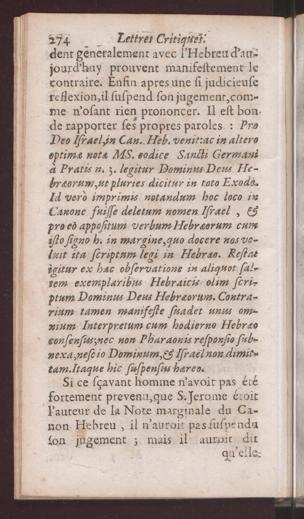 274 Lettres Critiques.
dent generalement avec l'Hebreu d'au-
jourd'huy prouvent manifestement le
contraire. Enfin apres une si judicieuse
reflexion, il suspend son jugement, com-
me n'osant rien prononcer. Il est bon
de rapporter ses propres paroles : Pro
Deo Israel, in Can. Heb. venit: ac in altero
optimæ notæ MS. codice Sancti Germani
à Pratis n. 3. legitur Dominus Deus He-
bræorum, ut pluries dicitur in toto Exodo.
Id verò imprimis notandum hoc loco in
Canone fuisse deletum nomen Israel, &
pro eò appositum verbum Hebræorum cum
isto signo h. in margine, quo docere nos vo-
luit ita scriptum legi in Hebræo. Restat
igitur ex hac observatione in aliquot sal-
tem exemplaribus Hebraicis olim scri-
ptum Dominus Deus Hebræorum. Contra-
rium tamen manifeste suadet unus om-
nium Interpretum cum hodierno Hebræo
consensus; nec non Pharaonis responsio sub-
nexa, nescio Dominum, & Israel non dimit-
tam. Itaque hic suspensus hæreo.
Si ce sçavant homme n'avoit pas été
fortement prevenu, que S. Jerome étoit
l'auteur de la Note marginale du Ca-
non Hebreu, il n'auroit pas suspendu
son jugement ; mais il auroit dit
qu'elle